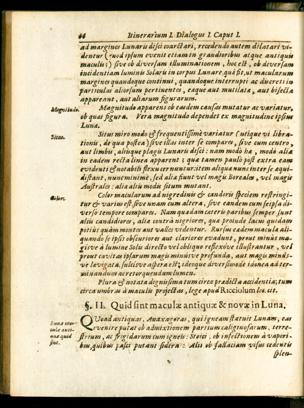 66 Itinerarium I. Dialogus I. Caput I.
ad margines Lunaris disci coarctari, recedendo autem dilatari videntur
maculis) sive ob diversam illuminationem, hoc est, ob diversam
incidentiam luminis Solaris in corpus Lunare quâ fit, ut macularum
margines quandoque continui, quandoque interrupti ac discreti in
particulas aliorsum pertinentes, eæque aut mutilatæ, aut bisectæ
appareant, aut aliarum figurarum.
Magnitudo. Magnitudo apparens ob easdem causas mutatur ac variatur,
ob quas figura. Vera magnitudo dependet ex magnitudine ipsius
Lunæ.
Situs. Situs miro modo & frequentissimè variatur (utique vi librationis,
de qua postea) sive illas inter se compares, sive cum centro,
aut limbis, aliisque plagis Lunaris disci: nam modò hæ, modò aliæ
in eadem recta linea apparent; quæ tamen paulò pòst extra eam
evidenti & notabili flexu cernuntur: item aliquæ nunc inter se æquidistant,
nunc minimè, sed alia situs vel magis Borealis, vel magis
Australis: alia aliis modis situm mutant.
Color. Color macularum ad nigredinis & candoris speciem restringitur
& varius est sive unam cum altera, sive eandem cum seipsa diverso
tempore compares. Nam quædam cæteris paribus semper sunt
aliis candidiores, aliæ contrà nigriores, quæ proinde lacus quidam
potiùs quàm montes aut valles videntur. Rursus eædem maculæ aliquando
se ipsis obscuriores aut clariores evadunt, prout minus magisve
à lumine Solis directè vel obliquè reflexivè illustrantur, vel
prout cavitas ipsarum magis minusve profunda, aut magis minusve
lævigata,
minandum acceptoque dum lumen.
Plura & notatu dignissima tum circa prædicta accidentia; tum
circa umbras à maculis projectas, lege apud Ricciolum loc. cit.
§. II. Quid sint maculæ antiquæ & novæ in Luna.
Lunæ maculæ antiquæ quid sint.
QUoad antiquas, Anaxagoras, qui igneam statuit Lunam, eas
venire putat ob admixtionem partium caliginosarum, terrestrium,
ac frigidarum cum igneis: Stoici, ob infectionem à vaporibus,
quibus pasci putant sidera: Alii ob fallaciam visus cedentis
splen-